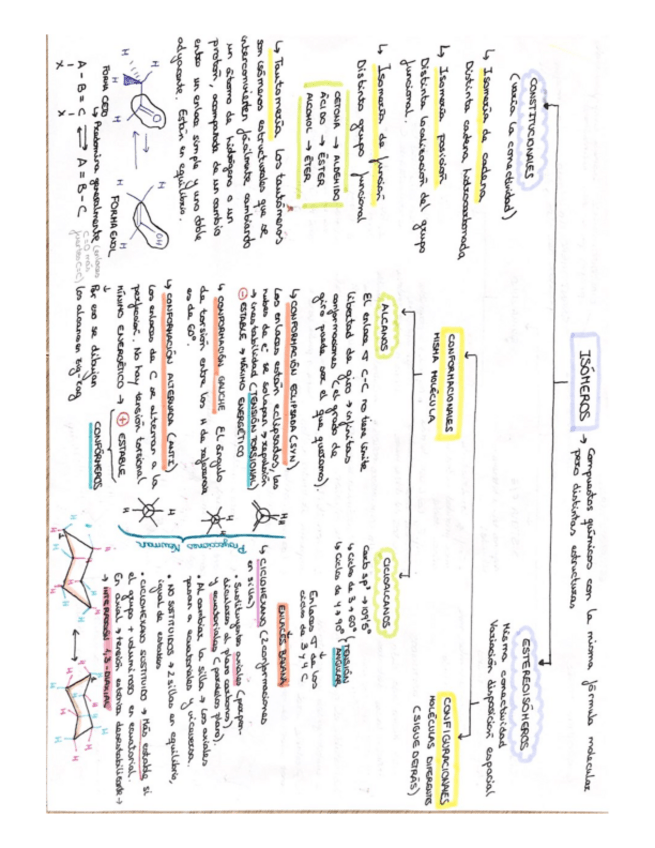 ISÓMEROS → Compuestos químicos con la misma fórmula molecular
pero distintas estructuras
CONSTITUCIONALES
(varía la conectividad)
↳ Isomería de cadena
Distinta cadena hidrocarbonada
↳ Isomería posición
Distinta localización del grupo
funcional.
↳ Isomería de función
Distinto grupo funcional
CETONA → ALDEHIDO
ÁCIDO → ÉSTER
ALCOHOL → ÉTER
↳ Tautomería Los tautómeros
son isómeros estructurales que se
interconvierten fácilmente cambiando
un átomo de hidrógeno o un
protón, acompañada de un cambio
entre un enlace simple y uno doble
adyacente. Están en equilibrio.
H
H
H
O
H
H
OH
H
FORMA CETO
FORMA ENOL
↳ Predomina generalmente (enlaces
C=O más
fuertes C=C)
A - B = C ⇄ A = B - C
X
X
ESTEREOISÓMEROS
Misma conectividad
Variación disposición espacial
CONFORMACIONALES
MISMA MOLÉCULA
CONFIGURACIONALES
MOLÉCULAS DIFERENTES
(SIGUE DETRÁS)
ALCANOS
El enlace σ C-C no tiene límite
libertad de giro → infinitas
conformaciones (el grado de
giro puede ser el que queramos).
↳ CONFORMACIÓN ECLIPSADA (SYN)
Los enlaces están eclipsados, las
nubes de e⁻ se solapan → repulsión
→ inestabilidad (TENSIÓN TORSIONAL)
⊖ ESTABLE → MÁXIMO ENERGÉTICO
↳ CONFORMACIÓN GAUCHE El ángulo
de torsión entre los H de referencia
es de 60°.
↳ CONFORMACIÓN ALTERNADA (ANTI)
Los enlaces de C se alternan a la
perfección. No hay tensión torsional
MÍNIMO ENERGÉTICO → ⊕ ESTABLE
↓
Por eso se dibujan
los alcanos en zig-zag
CONFÓRMEROS
Proyecciones Newman
CICLOALCANOS
Carb sp³ → 109'5°
↳ ciclo de 3 → 60° (TENSIÓN
↳ ciclo de 4 → 90° ANGULAR)
Enlaces σ de los
ciclos de 3 y 4 C
↓
ENLACES BANANA
↳ CICLOHEXANO (2 conformaciones
en silla)
· Sustituyentes axiales (perpen-
diculares al plano carbonos)
y ecuatoriales (paralelos plano).
· Al cambiar la silla → los axiales
pasan a ecuatoriales y viceversa.
· NO SUSTITUIDOS → 2 sillas en equilibrio,
igual de estables
· CICLOHEXANO SUSTITUIDO → Más estable si
el grupo + voluminoso en ecuatorial.
En axial → tensión estérica desestabilizante →
→ INTERACCIÓN 1,3-DIAXIAL